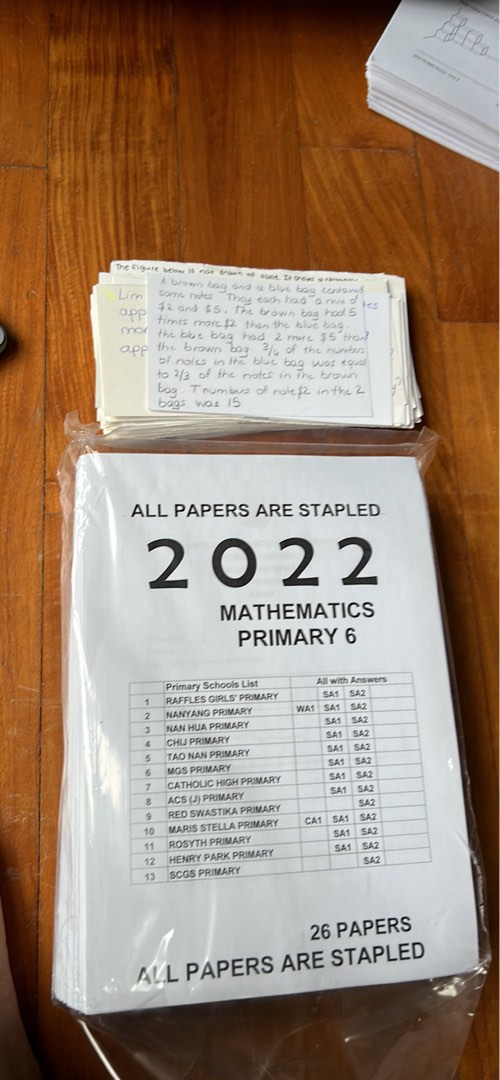 The figure below is not drawn to scale. It shows a
Lim
app
mor
app
A brown bag and a blue bag contained
some notes. They each had a mix of
$2 and $5. The brown bag had 5
times more $2 than the blue bag.
the blue bag had 2 more $5 than
the brown bag. 3/4 of the numbers
of notes in the blue bag was equal
to 2/3 of the notes in the brown
bag. T numbers of note $2 in the 2
bags was 15.
tes
ALL PAPERS ARE STAPLED
2022
MATHEMATICS
PRIMARY 6
Primary Schools List All with Answers
1 RAFFLES GIRLS' PRIMARY SA1 SA2
2 NANYANG PRIMARY WA1 SA1 SA2
3 NAN HUA PRIMARY SA1 SA2
4 CHIJ PRIMARY SA1 SA2
5 TAO NAN PRIMARY SA1 SA2
6 MGS PRIMARY SA1 SA2
7 CATHOLIC HIGH PRIMARY SA1 SA2
8 ACS (J) PRIMARY SA1 SA2
9 RED SWASTIKA PRIMARY SA2
10 MARIS STELLA PRIMARY CA1 SA1 SA2
11 ROSYTH PRIMARY SA1 SA2
12 HENRY PARK PRIMARY SA1 SA2
13 SCGS PRIMARY SA2
26 PAPERS
ALL PAPERS ARE STAPLED